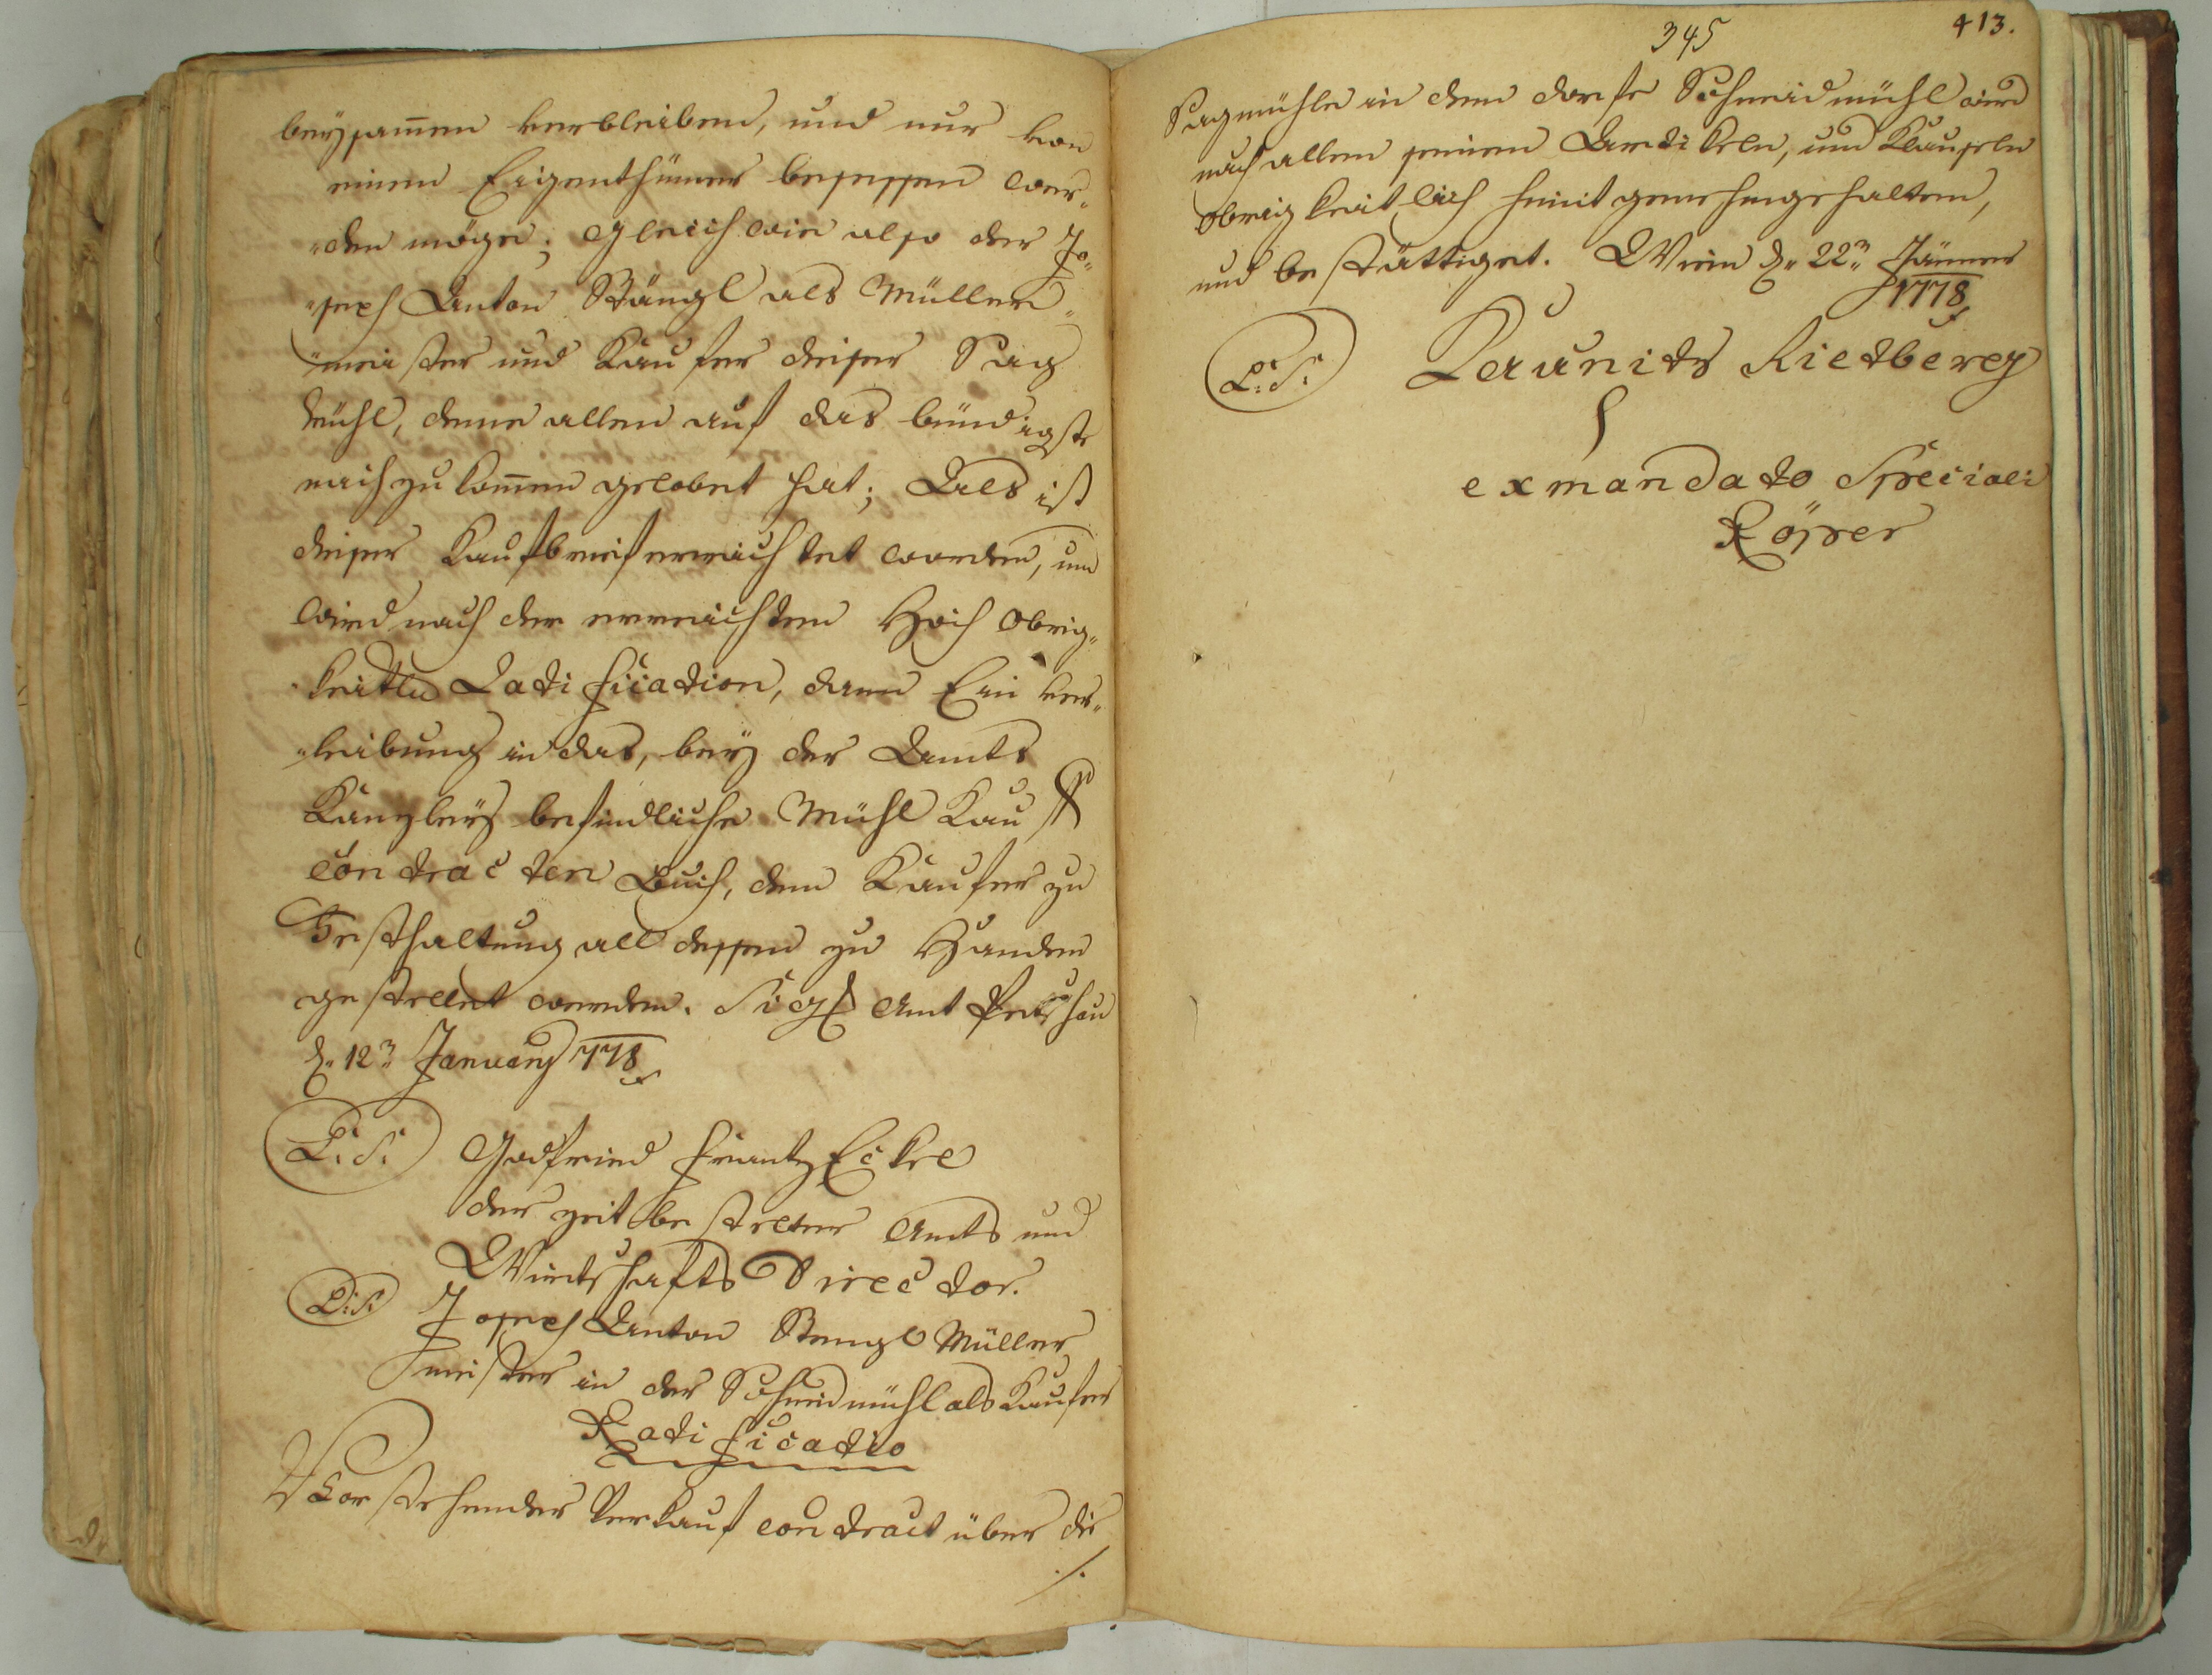 beysam̄en verbleiben, und nur von
einem Eigenthümer besessen wer„
„den möge; Gleichwie also der Jo„
„seph Anton Stängl als Müller„
„meister und Kaufer dieser Sag
Mühl, deme allen auf das bündigste
nachzukom̄en gelobet hat; Als ist
dieser Kaufbrief errichtet worden, und
wird nach der erreichten Hoch Obrig„
„keitln Ratification, dann Ein ver„
„leibung in das, bey der Amts
Kanzley befindliche Mühl Kauff
Contracten Buch, dem Kaufer zu
Festhaltung all dessen zu Handen
gestellet werden. Sigl Amt Petschau
d. 12n January 778
L: S: Godfried Frantz Eckel
der zeit bestelter Amts und
Wirtschafts Director.
L: S: Joseph Anton Stengl Müller
meister in der Schneidmühl als Kaufer
Ratificatio
Vorstehender Verkauf contract über die
./.
345 413.
Sagmühle in dem dorfe Schneidmühl wird
nach allen seinen Artikeln, und Klauseln
obrigkeitlich hiemit genehmgehalten,
und bestättiget. Wien d. 22n Jänner
1778
L: S: Kaunitz Rietberg
ex mandato Speciali
Röper